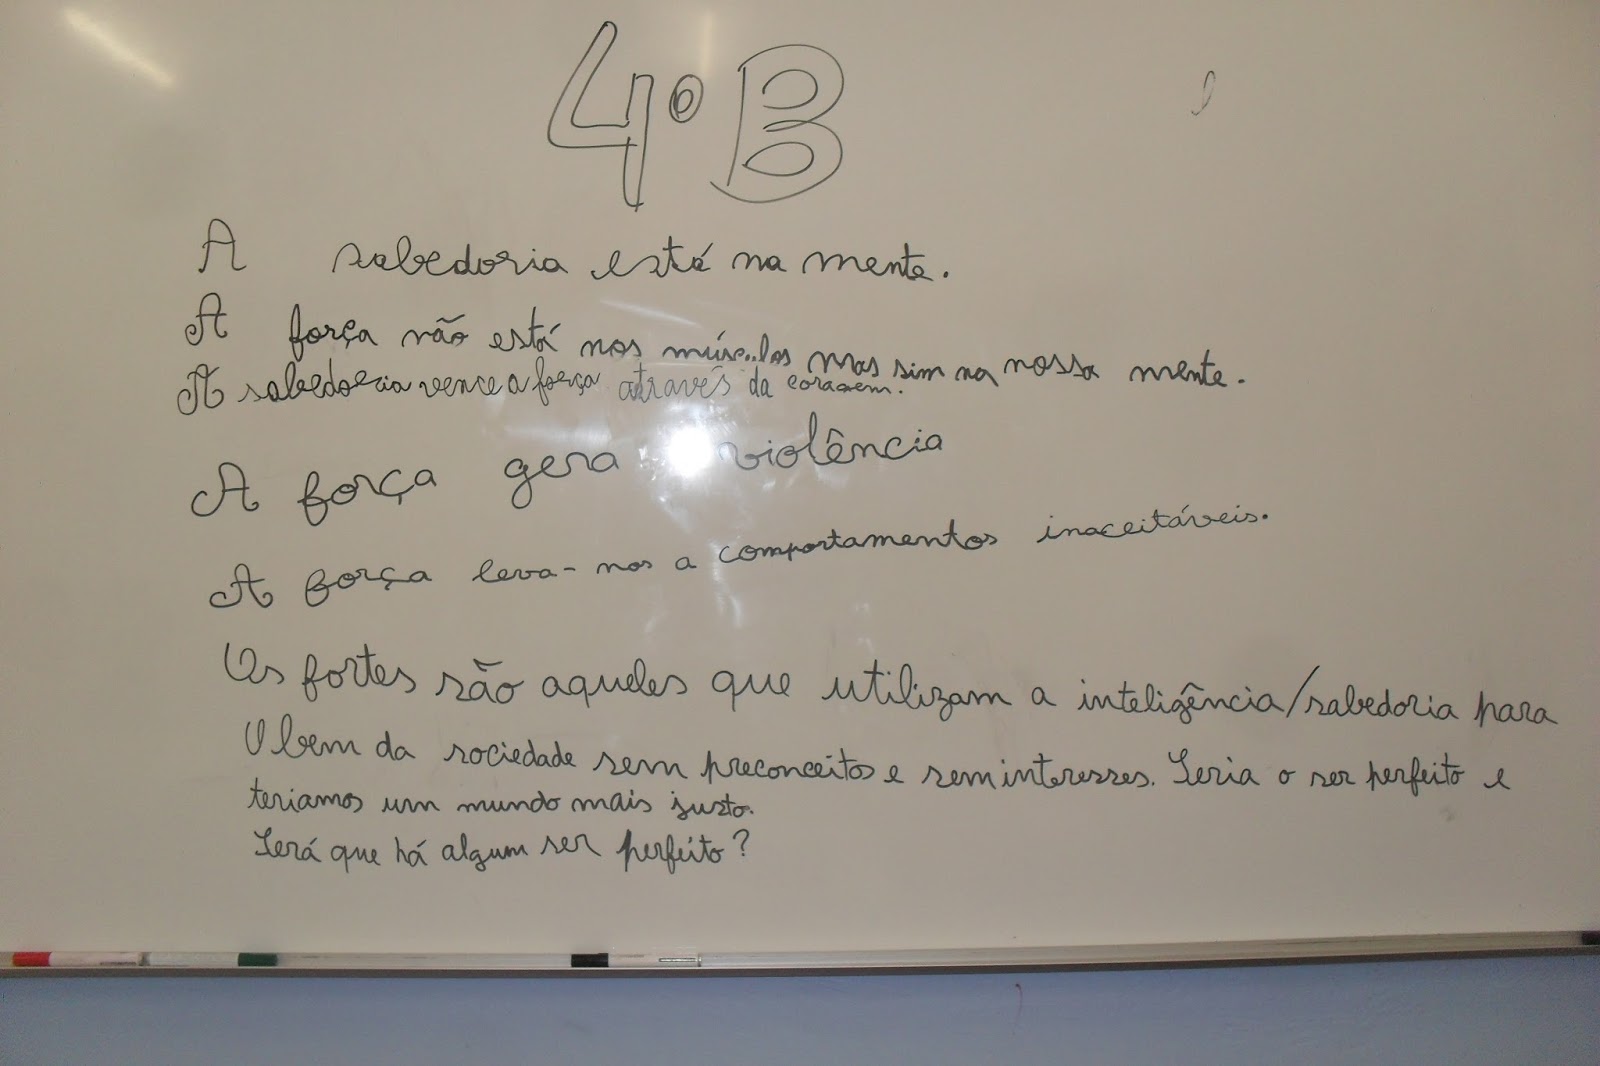 4º B
A sabedoria está na mente.
A força não está nos músculos mas sim na nossa mente.
A sabedoria vence a força através da coragem.
A força gera violência
A força leva-nos a comportamentos inaceitáveis.
Os fortes são aqueles que utilizam a inteligência/sabedoria para
O bem da sociedade sem preconceitos e sem interesses. Seria o ser perfeito e
teriamos um mundo mais justo.
Será que há algum ser perfeito?